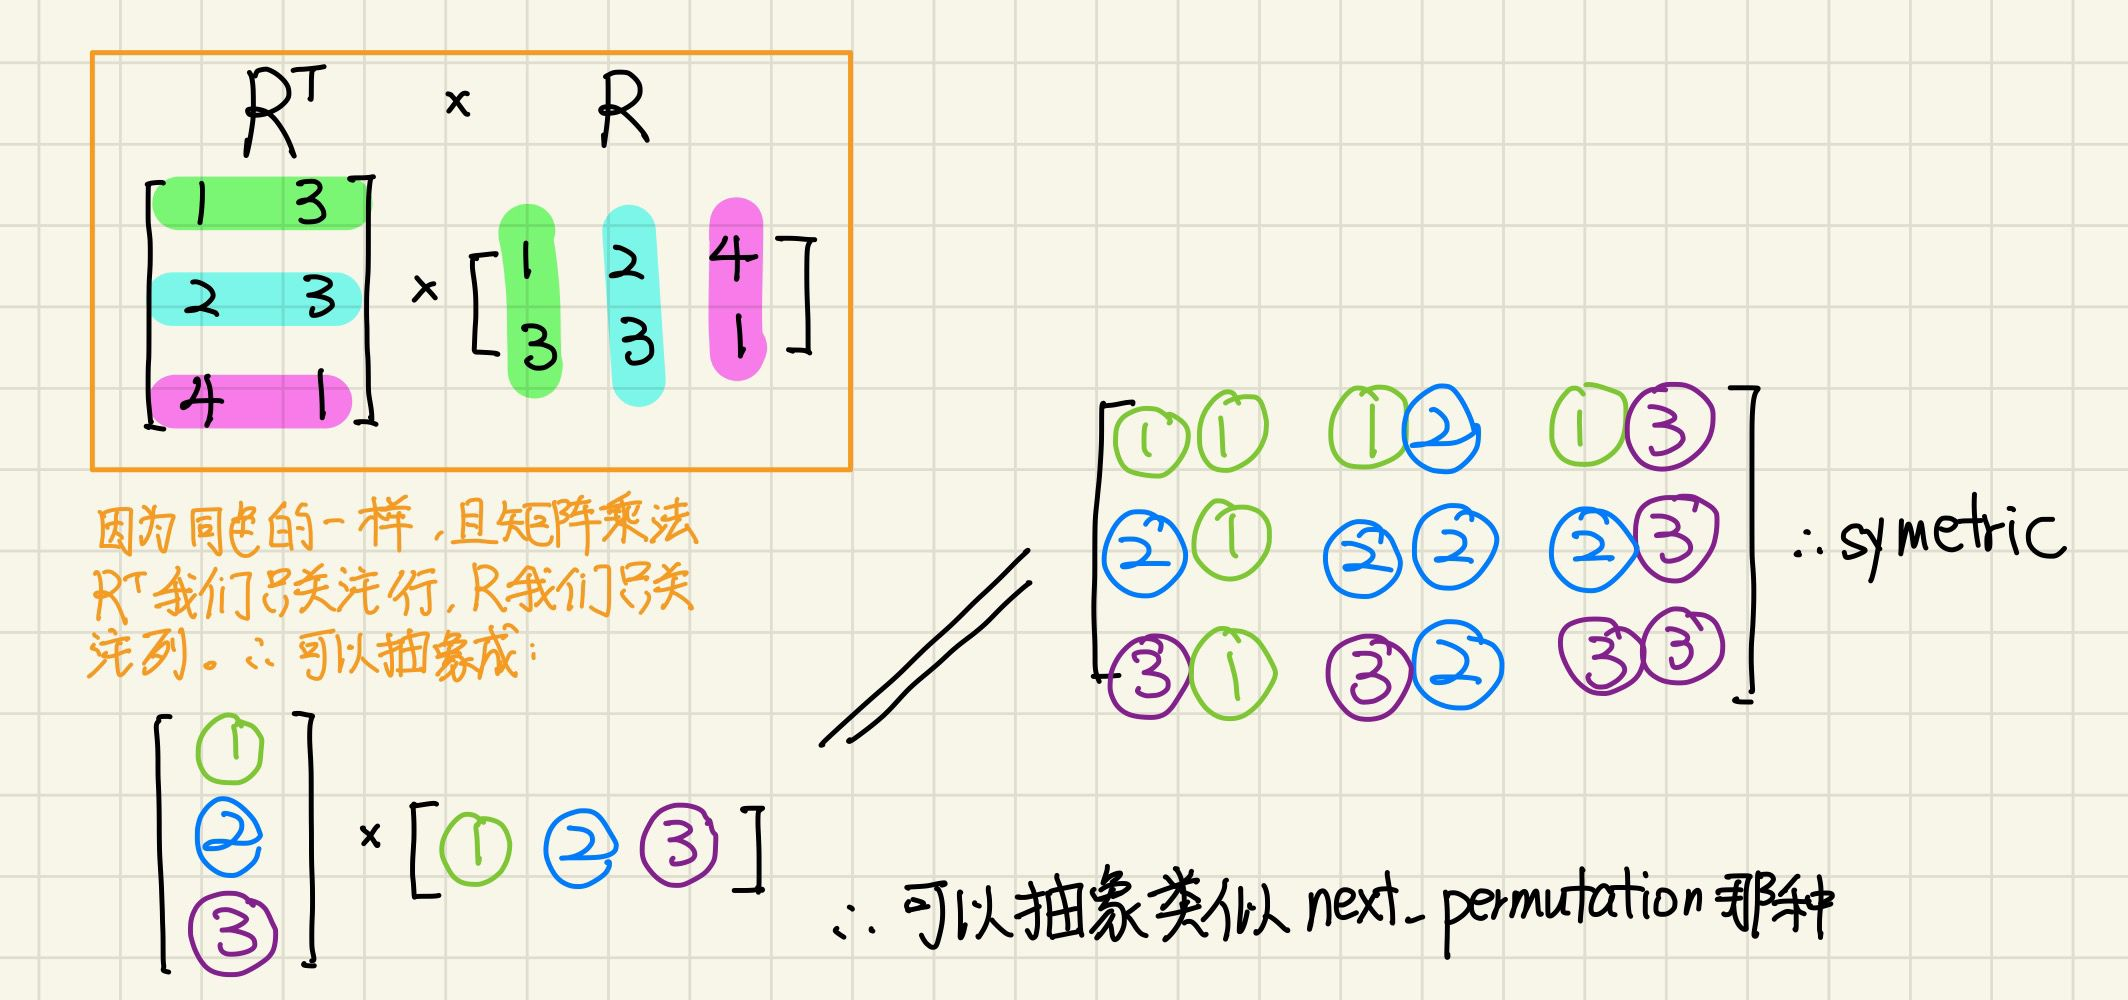 Rᵀ × R
1 3
2 3
4 1
×
1 2 4
3 3 1
因为同色的一样,且矩阵乘法
Rᵀ我们只关注行,R我们只关
注列。∴可以抽象成:
①
②
③
×
① ② ③
=
①① ①② ①③
②① ②② ②③
③① ③② ③③
∴ symetric
∴ 可以抽象类似 next_permutation 那种